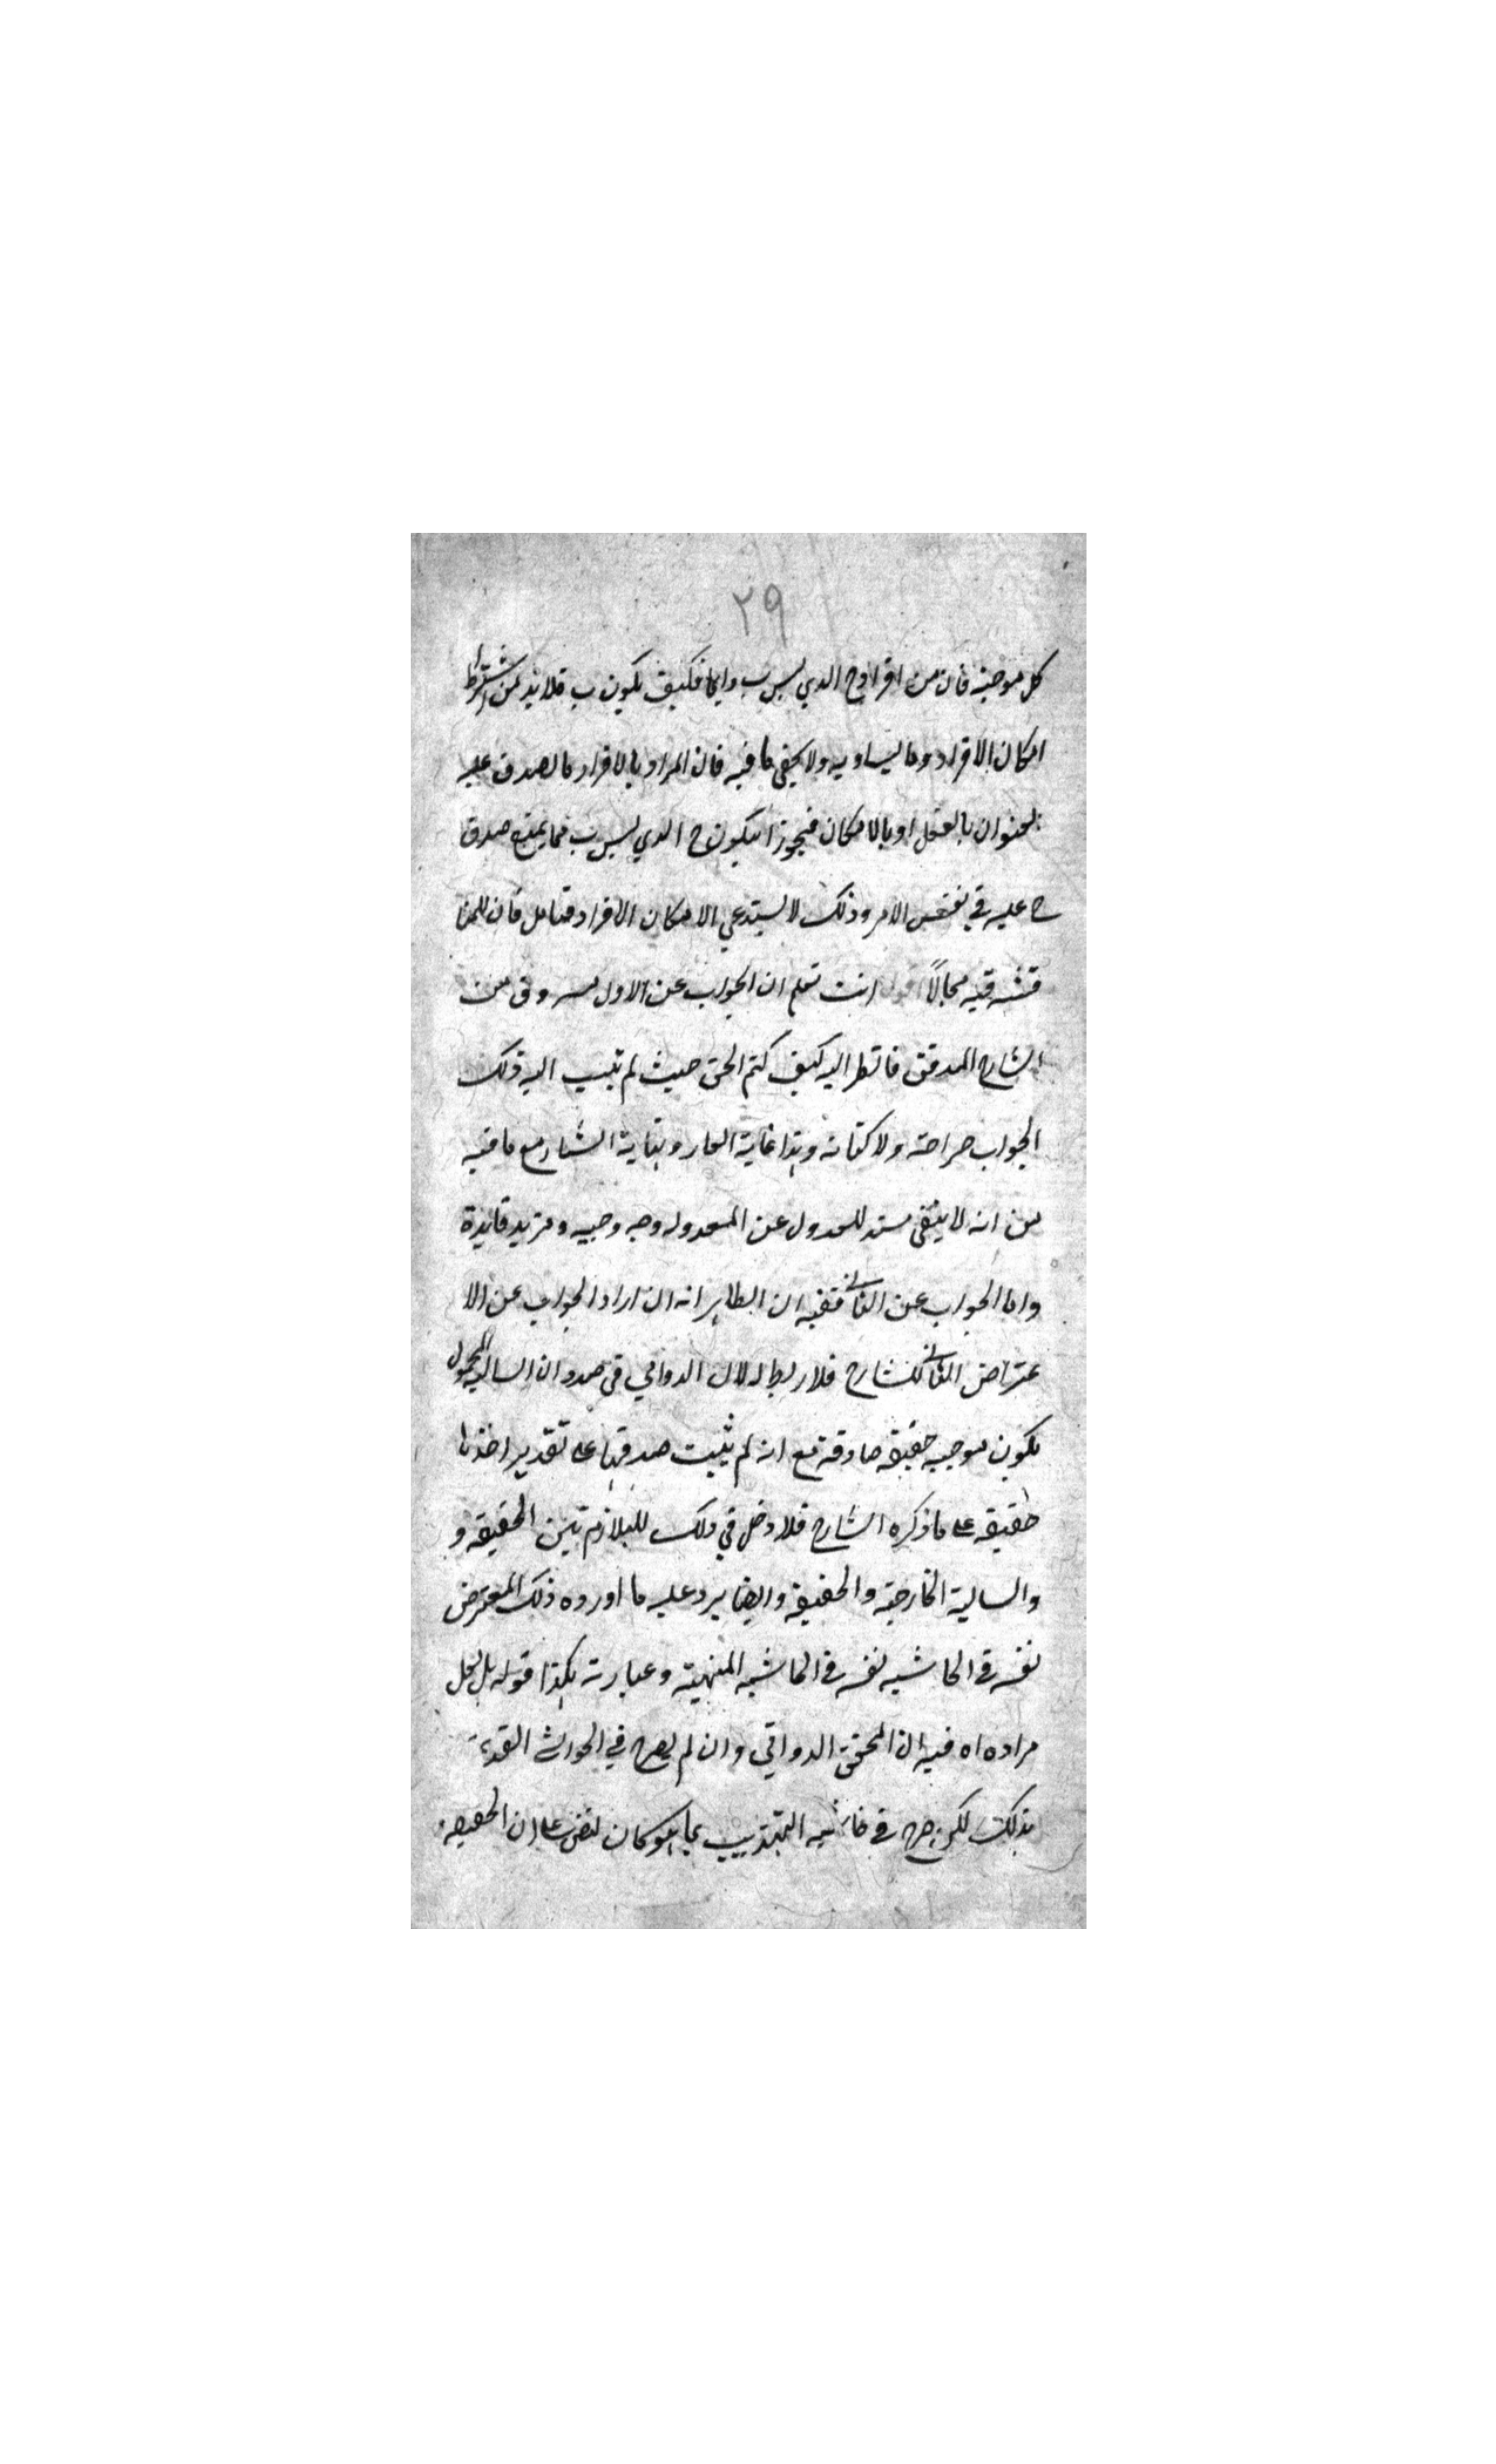 ٢٩
كل موجبة فان من افراد ج الذي ليس ب دايما فكيف يكون ب فلا بد من اشتراط
امكان الافراد وما يساويه ولا يخفى ما فيه فان المراد بالافراد ما يصدق عليه
العنوان بالفعل او بالامكان فيجوز ان يكون ج الذي ليس ب مما يمتنع صدق
ج عليه في نفس الامر وذلك لا يستدعي الا امكان الافراد فتامل فان للمنا
قشة فيه مجالاً اقول انت تعلم ان الجواب عن الاول مسروق من
الشارح المدقق فانظر اليه كيف كتم الحق حيث لم ينسب اليه ذلك
الجواب صراحة ولا كناية وهذا غاية العار ونهاية الشنار مع ما فيه
من انه لا يبقى للعدول عن المعدولة وجه وجيه ومزيد فايدة
واما الجواب عن الثاني ففيه ان الظاهر انه ان اراد الجواب عن الا
عتراض الثاني للشارح فلا ربط له لان الدواني في صدد ان السالبة المحمول
يكون موجبه حقيقة صادقة مع انه لم يثبت صدقها على تقدير اخذها
حقيقة على ما ذكره الشارح فلا دخل في ذلك للتلازم بين الحقيقة و
والسالبة الخارجية والحقيقة وايضا يرد عليه ما اورده ذلك المعترض
نفسه في الحاشيه نفسه في الحاشيه المنهية وعبارته هكذا قوله بل لعل
مراده اه فيه ان المحقق الدواني وان لم يصرح في الحواشي القديمة
بذلك لكن صرح في حاشيه التهذيب بما هو كان لنقض على ان الحقيقة